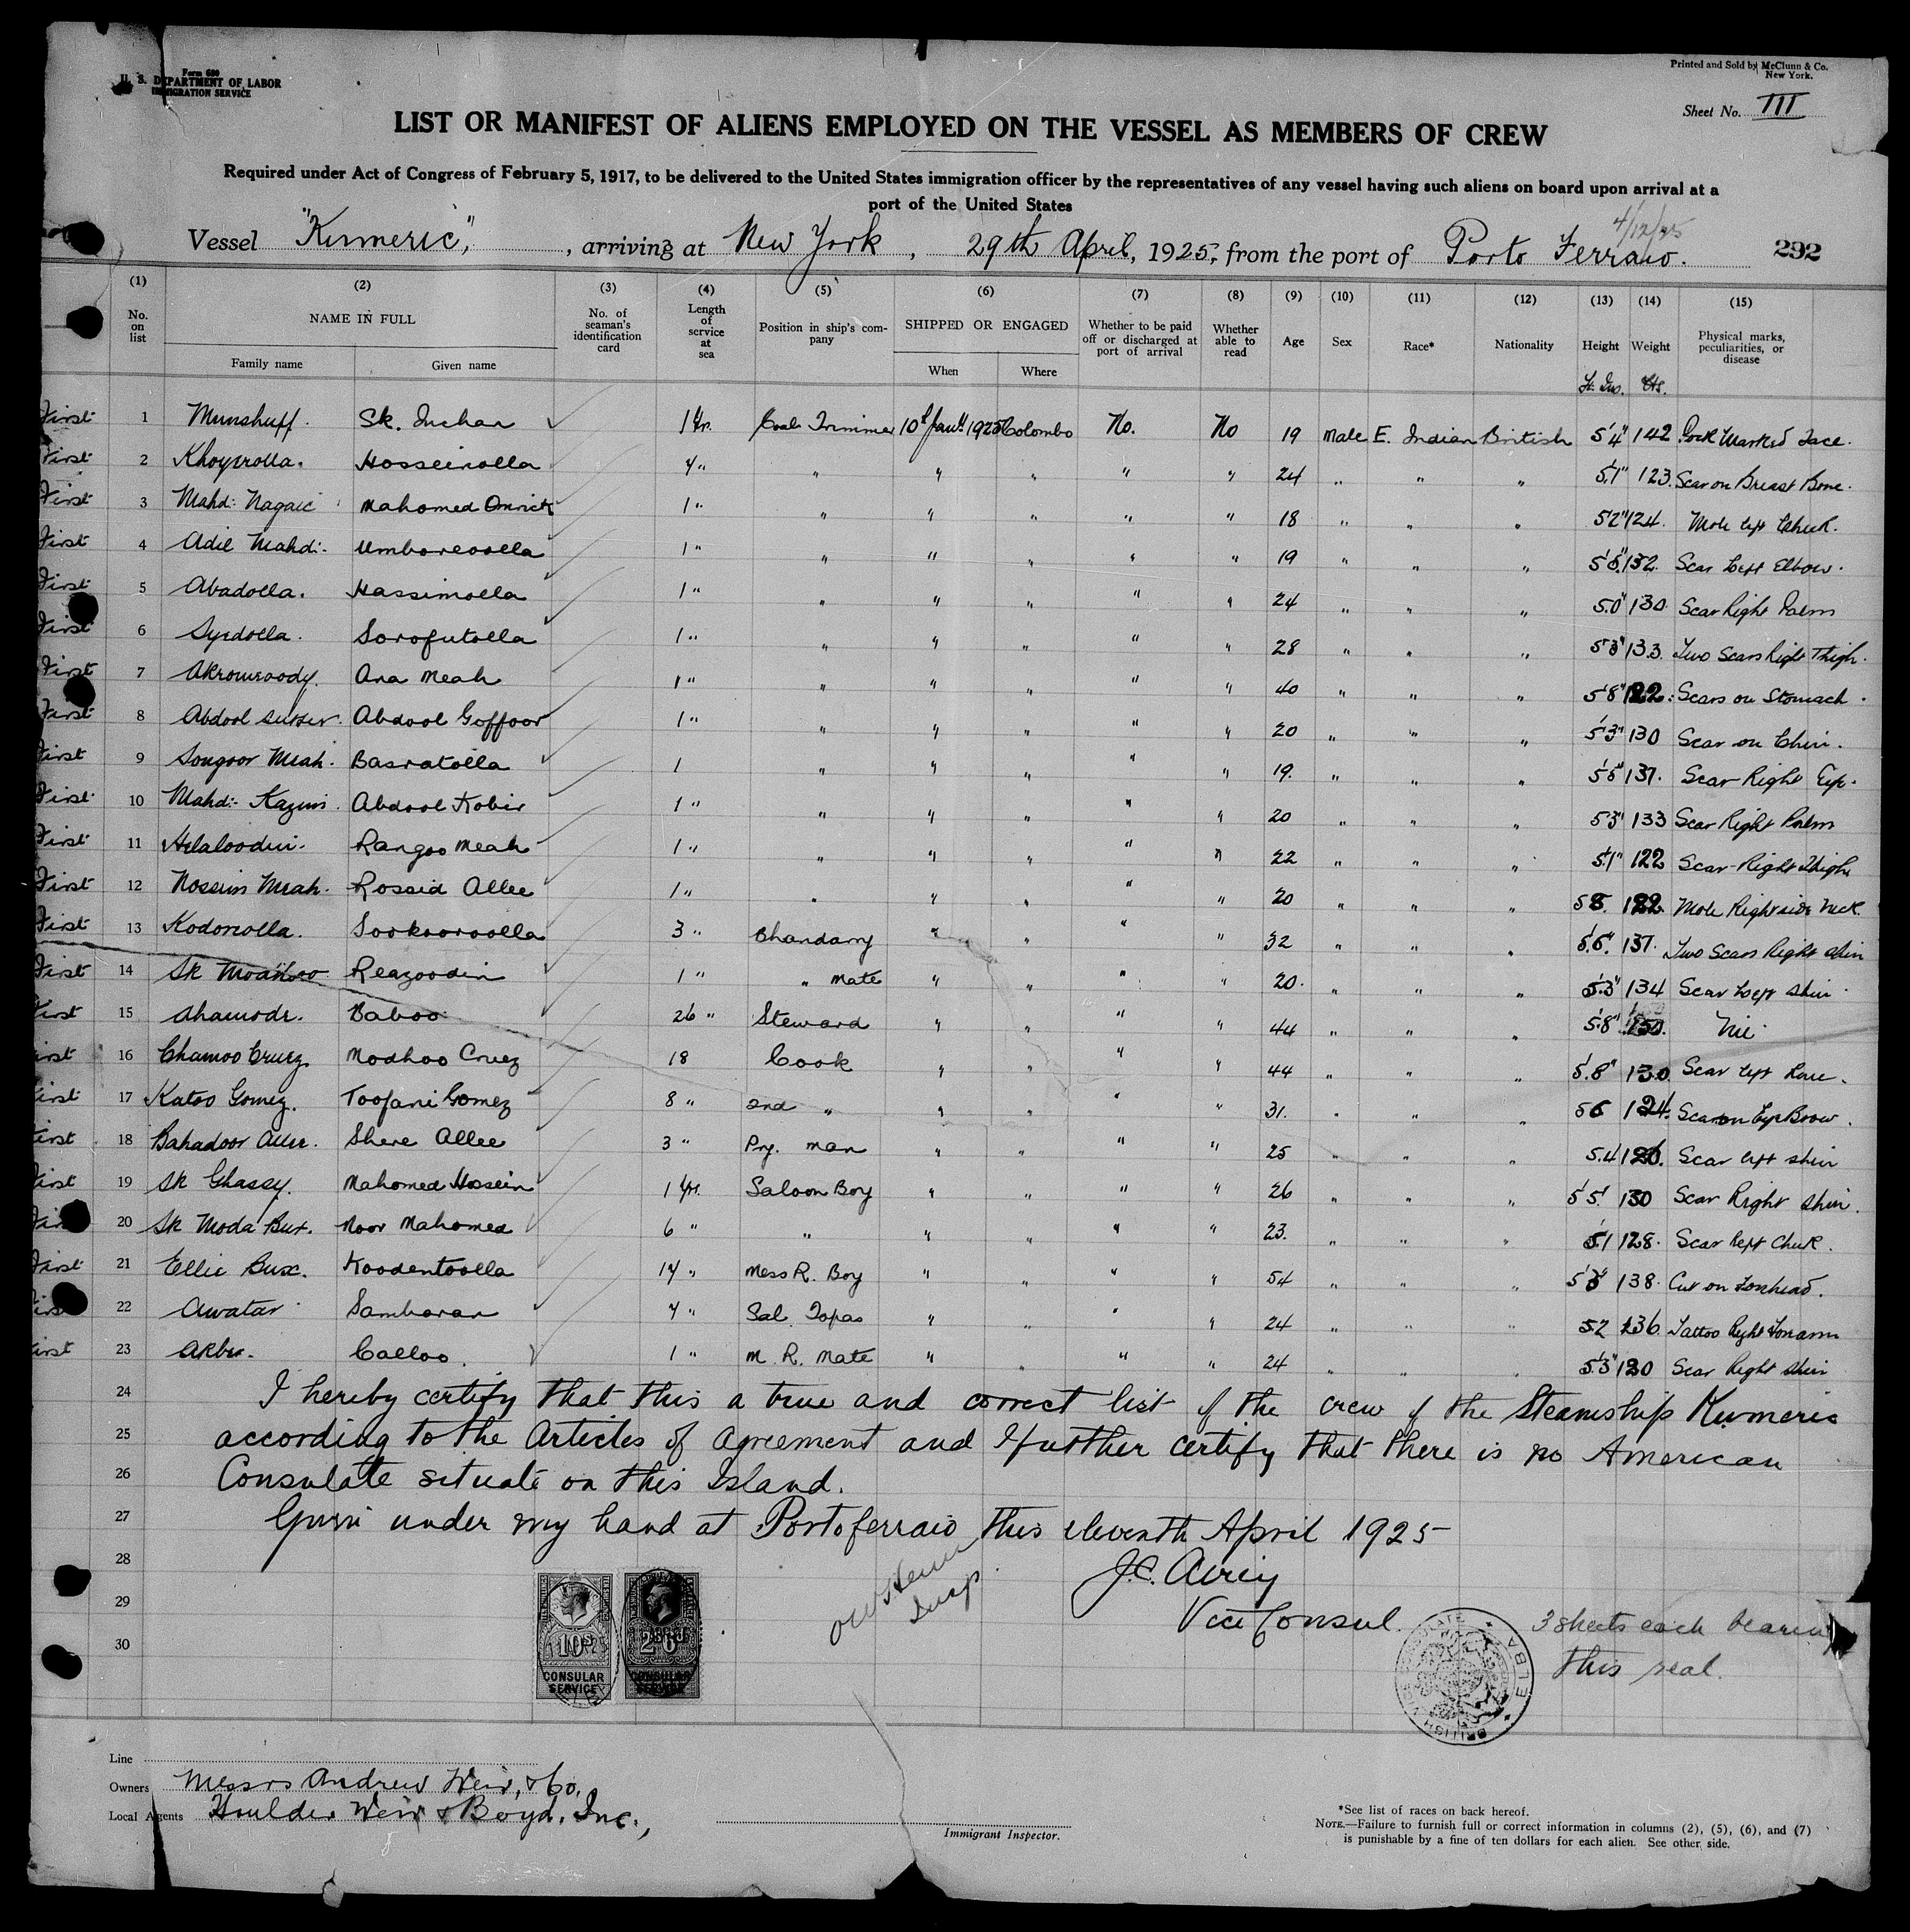 Form 680
U. S. DEPARTMENT OF LABOR
IMMIGRATION SERVICE
Printed and Sold by McClunn & Co.
New York.
Sheet No. III
LIST OR MANIFEST OF ALIENS EMPLOYED ON THE VESSEL AS MEMBERS OF CREW
Required under Act of Congress of February 5, 1917, to be delivered to the United States immigration officer by the representatives of any vessel having such aliens on board upon arrival at a
port of the United States
4/12/25
Vessel "Kumeric", , arriving at New York, 29th April, 1925, from the port of Porto Ferraio. 292
(1) (2) (3) (4) (5) (6) (7) (8) (9) (10) (11) (12) (13) (14) (15)
No. on list NAME IN FULL Family name Given name No. of seaman's identification card Length of service at sea Position in ship's company SHIPPED OR ENGAGED When Where Whether to be paid off or discharged at port of arrival Whether able to read Age Sex Race* Nationality Height Weight Physical marks, peculiarities, or disease
Ft. Ins.
First 1 Munshuff. Sk. Inchan 1 Yr. Coal Trimmer 10th Jan 1925 Colombo No. No 19 Male E. Indian British 5'4" 142 Pock Marked Face.
First 2 Khoyerolla. Hosseinolla 4 " " " " " " 24 " " " 5'1" 123. Scar on Breast Bone.
First 3 Mahd: Nagaie Mahomed 1 " " " " " " 18 " " " 5'2" 124. Mole left Cheek.
First 4 Adil Mahd:- Umboreoolla 1 " " " " " " 19 " " " 132. Scar Left Elbow.
First 5 Abadolla. Hassimolla 1 " " " " " " 24 " " " 5'0" 130 Scar Right Palm
First 6 Syedolla. Sorofutolla 1 " " " " " " 28 " " " 5'3" 133. Two Scars Right Thigh.
First 7 Akromroody. Ana Meah 1 " " " " " " 40 " " " 5'8" 122. Scars on Stomach.
First 8 Abdool Abdool Goffoor 1 " " " " " " 20 " " " 5'3" 130 Scar on Chin.
First 9 Songoor Meah. Basratolla 1 " " " " " 19. " " " 137. Scar Right Eye.
First 10 Mahd:- Kazim. Abdool Kobir 1 " " " " " " 20 " " " 5'3" 133 Scar Right Palm
First 11 Helaloodin. Rangoo Meah 1 " " " " " " 22 " " " 5'1" 122 Scar Right Thigh
First 12 Nossim Meah. Rossid Allee 1 " " " " " " 20 " " " 122. Mole Right side Neck.
First 13 Kodorolla. Sookooroolla 3 " Bhandary " " " " 32 " " " 137. Two Scars Right Shin
First 14 Sk Reazoodin 1 " " Mate " " " " 20. " " " 5'3" 134 Scar Left Shin
First 15 Baboo 26 " Steward " " " " 44 " " " 5'8" 150. Nil.
First 16 Chamoo Cruez. Modhoo Cruez 18 Cook " " " " 44 " " " 5'8" 130 Scar left Knee.
First 17 Katoo Gomez. Toofani Gomez 8 " 2nd " " " " " 31. " " " 124. Scar on Eye Brow.
First 18 Bahadoor Allee. Shere Allee 3 " Pry. man " " " " 25 " " " 5.4 Scar left shin
First 19 Sk Ghassy. Mahomed Hossein 1 Yr. Saloon Boy " " " " 26 " " " 5'5' 130 Scar Right Shin.
First 20 Sk Moda Bux. Noor Mahomed 6 " " " " " " 23. " " " 5'1 128. Scar Left Cheek.
First 21 Ellie Bux. Koodentoolla 14 " Mess R. Boy " " " " 54 " " " 5'3" 138. Cut on Forehead.
First 22 Awatar Sambaran 4 " Sal. Topas " " " " 24 " " " 5.2 136. Tattoo Right Forearm
First 23 Akbu. Calloo. 1 " M. R. Mate " " " " 24 " " " 5'3" 130 Scar Right Shin
24 I hereby certify that this a true and correct list of the crew of the Steamship Kumeric
25 according to the Articles of Agreement and I further certify that there is no American
26 Consulate situate on this Island.
27 Given under my hand at Portoferraio this eleventh April 1925
28 J.C. Airey
29 Vice Consul.
30
3 sheets each bearing
this seal.
Insp.
10s CONSULAR SERVICE
2s 6d CONSULAR SERVICE
BRITISH VICE CONSULATE ELBA
Line
Owners Messrs Andrew Weir, & Co.
Local Agents Houlder Weir & Boyd, Inc.,
Immigrant Inspector.
*See list of races on back hereof.
NOTE.—Failure to furnish full or correct information in columns (2), (5), (6), and (7)
is punishable by a fine of ten dollars for each alien. See other side.